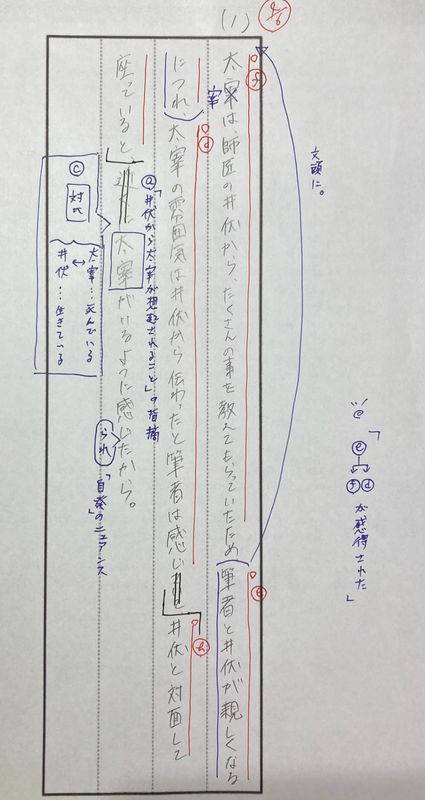 (1)
太宰は、師匠の井伏から、たくさんの事を教えてもらっていたため筆者と井伏が親しくなる
につれ、太宰の雰囲気は井伏から伝わったと筆者は感じ
井伏と対面して
座っていると
太宰がいるように感じたから。
宰
文頭に。
ⓕ
ⓔ
ⓓ
ⓐ「井伏から太宰が想起されること」の指摘
ⓒ
対比
太宰…死んでいる
↔
井伏…生きている
られ
「自発」のニュアンス
「ⓔ
ⓕ ⓓ
が感得された」